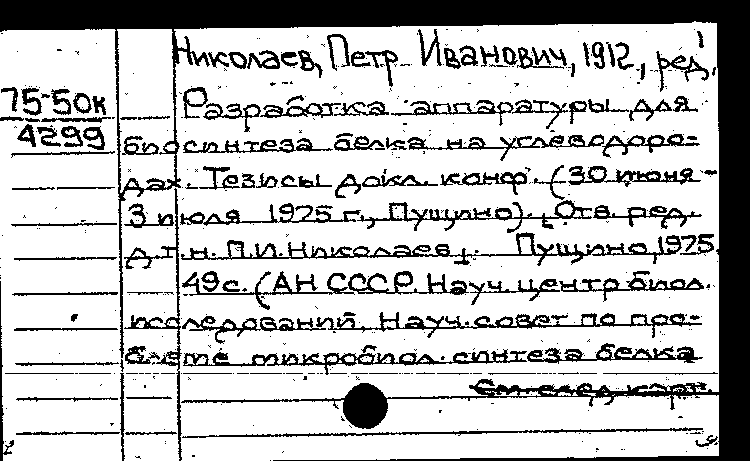 Николаев, Петр Иванович, 1912, ред.
75-50к
4299
Разработка аппаратуры для
биосинтеза белка на углеводоро-
дах. Тезисы докл. конф. (30 июня -
3 июля 1975 г., Пущино). [Отв. ред.
д.т.н. П.И. Николаев]. Пущино, 1975.
49с. (АН СССР. Науч. центр биол.
исследований, Науч. совет по про-
блеме микробиол. синтеза белка
См след карт.